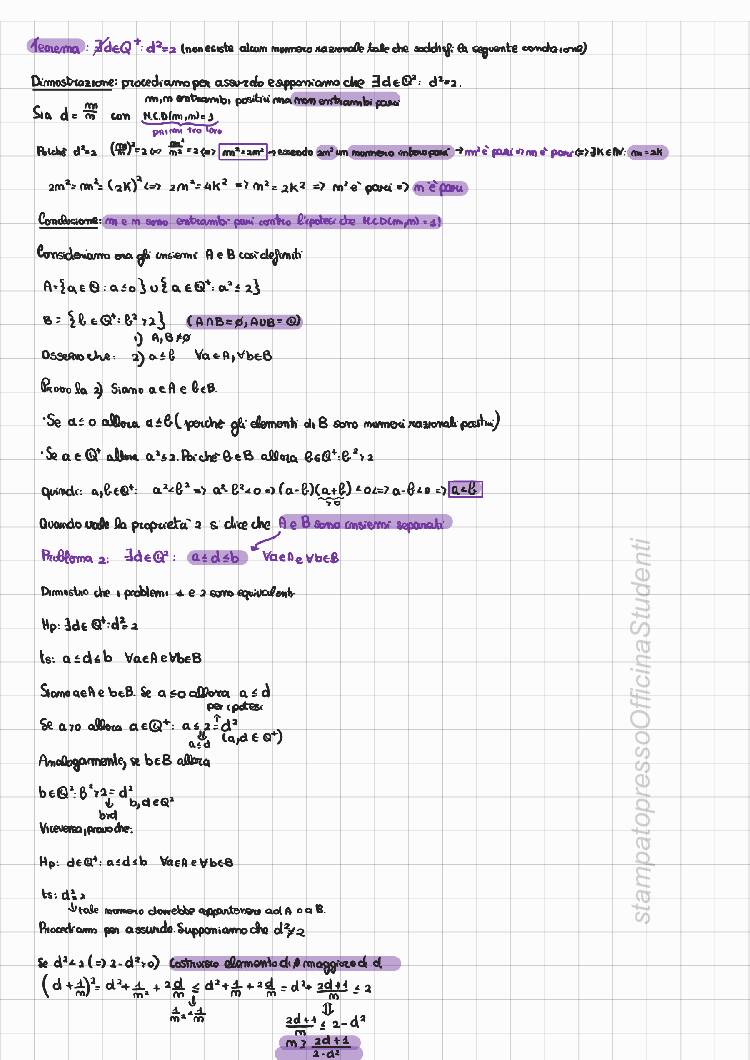 Teorema: ∄d∈Q⁺: d²=2 (non esiste alcun numero razionale tale che soddisfi la seguente condizione)
Dimostrazione: procediamo per assurdo e supponiamo che ∃d∈Q⁺: d²=2.
m,n entrambi positivi ma non entrambi pari
Sia d = m/n con M.C.D(m,n)=1
primi tra loro
Poiché d²=2 (m/n)²=2 <=> m²/n²=2 <=> m²=2n² → essendo 2n² un numero intero pari → m² è pari => m è pari <=> ∃K∈N: m=2K
2n²=m²=(2K)² <=> 2n²=4K² => n²=2K² => n² è pari => n è pari
Conclusione: m e n sono entrambi pari contro l'ipotesi che M.C.D(m,n)=1)
Consideriamo ora gli insiemi A e B così definiti
A={a∈Q: a≤0} ∪ {a∈Q⁺: a²≤2}
B={b∈Q⁺: b²>2} (A∩B=∅, A∪B=Q)
1) A,B≠∅
Osservo che: 2) a≤b ∀a∈A, ∀b∈B
Provo la 2) Siano a∈A e b∈B.
·Se a≤0 allora a≤b (perché gli elementi di B sono numeri razionali positivi)
·Se a∈Q⁺ allora a²≤2. Poiché b∈B allora b∈Q⁺: b²>2
quindi: a,b∈Q⁺: a²<b² => a²-b²<0 => (a-b)(a+b)<0 <=> a-b<0 => a<b
>0
Quando vale la proprietà 2 si dice che A e B sono insiemi separati
Problema 2: ∃d∈Q⁺: a≤d≤b ∀a∈A e ∀b∈B
Dimostro che i problemi 1 e 2 sono equivalenti
Hp: ∃d∈Q⁺: d²=2
ts: a≤d≤b ∀a∈A e ∀b∈B
Siano a∈A e b∈B. Se a≤0 allora a≤d
per ipotesi
Se a>0 allora a∈Q⁺: a≤2=d²
a≤d (a,d∈Q⁺)
Analogamente, se b∈B allora
b∈Q⁺: b²>2=d²
b,d∈Q⁺
b>d
Viceversa, provo che:
Hp: d∈Q⁺: a≤d≤b ∀a∈A e ∀b∈B
ts: d²=2
↳ tale numero dovrebbe appartenere ad A o a B.
Procediamo per assurdo. Supponiamo che d²≠2
Se d²<2 (=> 2-d²>0) Costruisco elemento di A maggiore di d
(d+1/n)²=d²+1/n²+2d/n ≤ d²+1/n+2d/n = d²+(2d+1)/n ≤ 2
1/n²<1/n
(2d+1)/n ≤ 2-d²
n ≥ (2d+1)/(2-d²)
stampatopressoOfficinaStudenti